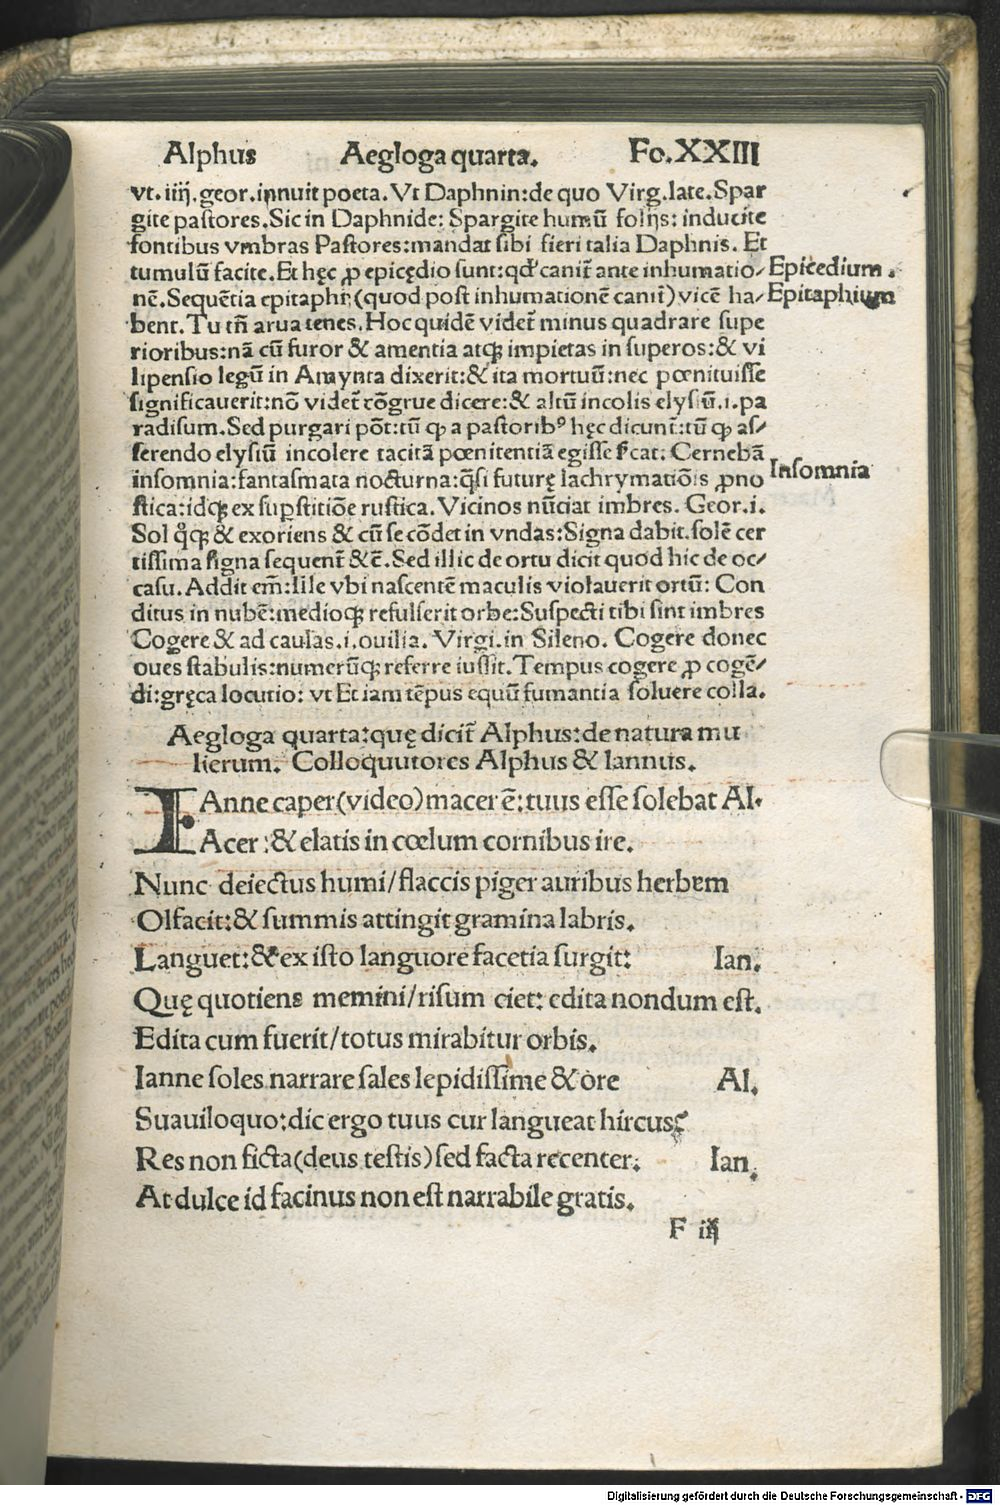 Alphus Aegloga quarta. Fo.XXIII
vt. iiij. geor. innuit poeta. Vt Daphnin: de quo Virg. late. Spar
gite pastores. Sic in Daphnide: Spargite humū folijs: inducite
fontibus vmbras Pastores: mandat sibi fieri talia Daphnis. Et
tumulū facite. Et hęc ꝓ epicędio sunt: qđ canit̄ ante inhumatio/ Epicedium.
nē. Sequētia epitaphij (quod post inhumationē canit̄) vicē ha/ Epitaphium
bent. Tu tn̄ arua tenes. Hoc quidē videt̄ minus quadrare supe
rioribus: nā cū furor & amentia atqꝫ impietas in superos: & vi
lipensio legū in Amynta dixerit: & ita mortuū: nec pœnituisse
significauerit: nō videt̄ cōgrue dicere: & altū incolis elysiū. i. pa
radisum. Sed purgari pōt: tū ꝙ a pastoribꝰ hęc dicunt̄: tū ꝙ as/
serendo elysiū incolere tacitā pœnitentiā egisse
insomnia: fantasmata nocturna: q̄si futurę lachrymatiōis ꝓno Insomnia
stica: idqꝫ ex sup̱stitiōe rustica. Vicinos nūciat imbres. Geor. i.
Sol qͦqꝫ & exoriens & cū se cōdet in vndas: Signa dabit. solē cer
tissima signa sequent̄ &c̄. Sed illic de ortu dicit quod hic de oc/
casu. Addit em̄: Ille vbi nascentē maculis violauerit ortū: Con
ditus in nubē: medioqꝫ refulserit orbe: Suspecti tibi sint imbres
Cogere & ad caulas. i. ouilia. Virgi. in Sileno. Cogere donec
oues stabulis: numerūqꝫ referre iussit. Tempus cogere ꝓ cogē/
di: gręca locutio: vt Et iam tēpus equū fumantia soluere colla.
Aegloga quarta: quę dicit̄ Alphus: de natura mu
lierum. Colloquutores Alphus & Iannus.
IAnne caper (video) macer ē: tuus esse solebat Al.
Acer: & elatis in cœlum cornibus ire.
Nunc deiectus humi/ flaccis piger auribus herbam
Olfacit: & summis attingit gramina labris.
Languet: & ex isto languore facetia surgit: Ian.
Quę quotiens memini/ risum ciet: edita nondum est.
Edita cum fuerit/ totus mirabitur orbis.
Ianne soles narrare sales lepidissime & ore Al.
Suauiloquo: dic ergo tuus cur langueat hircus?
Res non ficta (deus testis) sed facta recenter. Ian.
At dulce id facinus non est narrabile gratis.
F iij
Digitalisierung gefördert durch die Deutsche Forschungsgemeinschaft - DFG